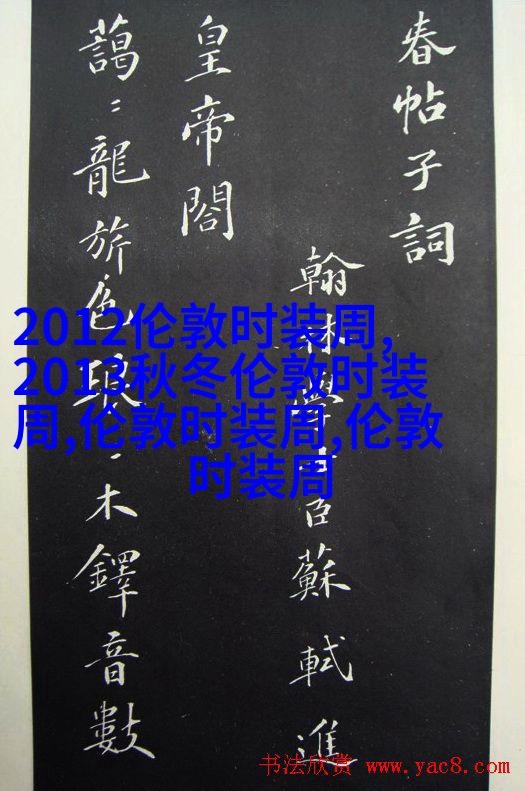 春帖子詞
翰林學士臣蘇軾進
皇帝閤
藹〻龍旂色琅〻木鐸音數
2012伦敦时装周,
2013秋冬伦敦时装
周,伦敦时装周,伦敦
时装周
书法欣赏 www.yac8.com